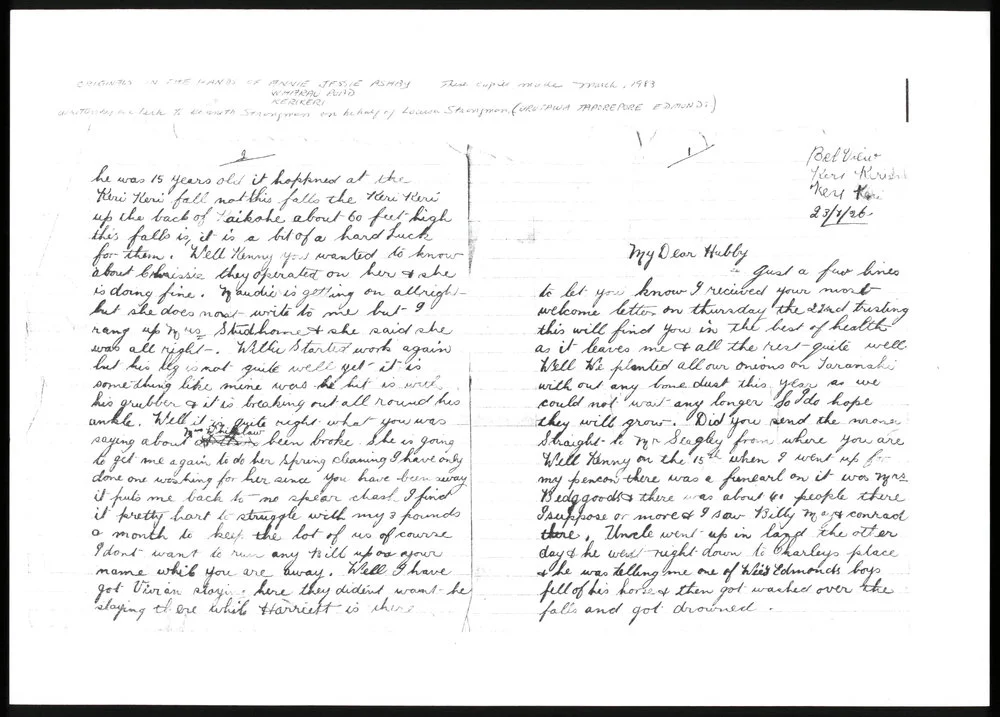 ORIGINALS IN THE HANDS OF ANNIE JESSIE ASHBY These copies made March, 1983
WHARAU ROAD
KERIKERI
Kenneth Strongman on behalf of Louisa Strongman (UROTAWA TAPOREPORE EDMUNDS)
1
Bel View
Keri Keri
Keri Keri
23/7/26.
My Dear Hubby
Just a few lines
to let you know I received your most
welcome letter on thursday the 22nd trusting
this will find you in the best of health
as it leaves me & all the rest quite well
Well We planted all our onions on Taranaki
with out any bone dust this year as we
could not wait any longer So I do hope
they will grow. Did you send the money
Straight to Mr Seagley from where you are
Well Kenny on the 15th when I went up for
my pencon there was a funearl on it was Mrs
Bedggoods & there was about 40 people there
I suppose or more & I saw Billy May & conrad
there. Uncle went up in land the other
day & he went right down to Charleys place
& he was telling me one of Edmonds boys
fell of his horse & then got washed over the
falls and got drowned.
2
he was 15 years old it happned at the
Keri Keri fall not this falls the Keri Keri
up the back of about 60 feet high
this falls is, it is a bit of a hard Luck
for them. Well Kenny you wanted to know
about Chrissie they operated on her & she
is doing fine. Maudie is getting on allright
but she does not write to me but I
rang up Mrs Studhome & she said she
was all right. Willie Started work again
but his leg is not quite well yet it is
something like mine was he hit is with
his grubber & it is breaking out all round his
ankle. Well it is quite right what you was
saying about Mrs Whitelaw been broke. She is going
to get me again to do her Spring cleaning I have only
done one washing for her since you have been away
it puts me back to no spear chash I find
it pretty hart to struggle with my 3 pounds
a month to keep the lot of us of course
I dont want to run any Bill up on your
name while you are away. Well I have
got Vivian staying here they dident want he
staying there while Harriett is there